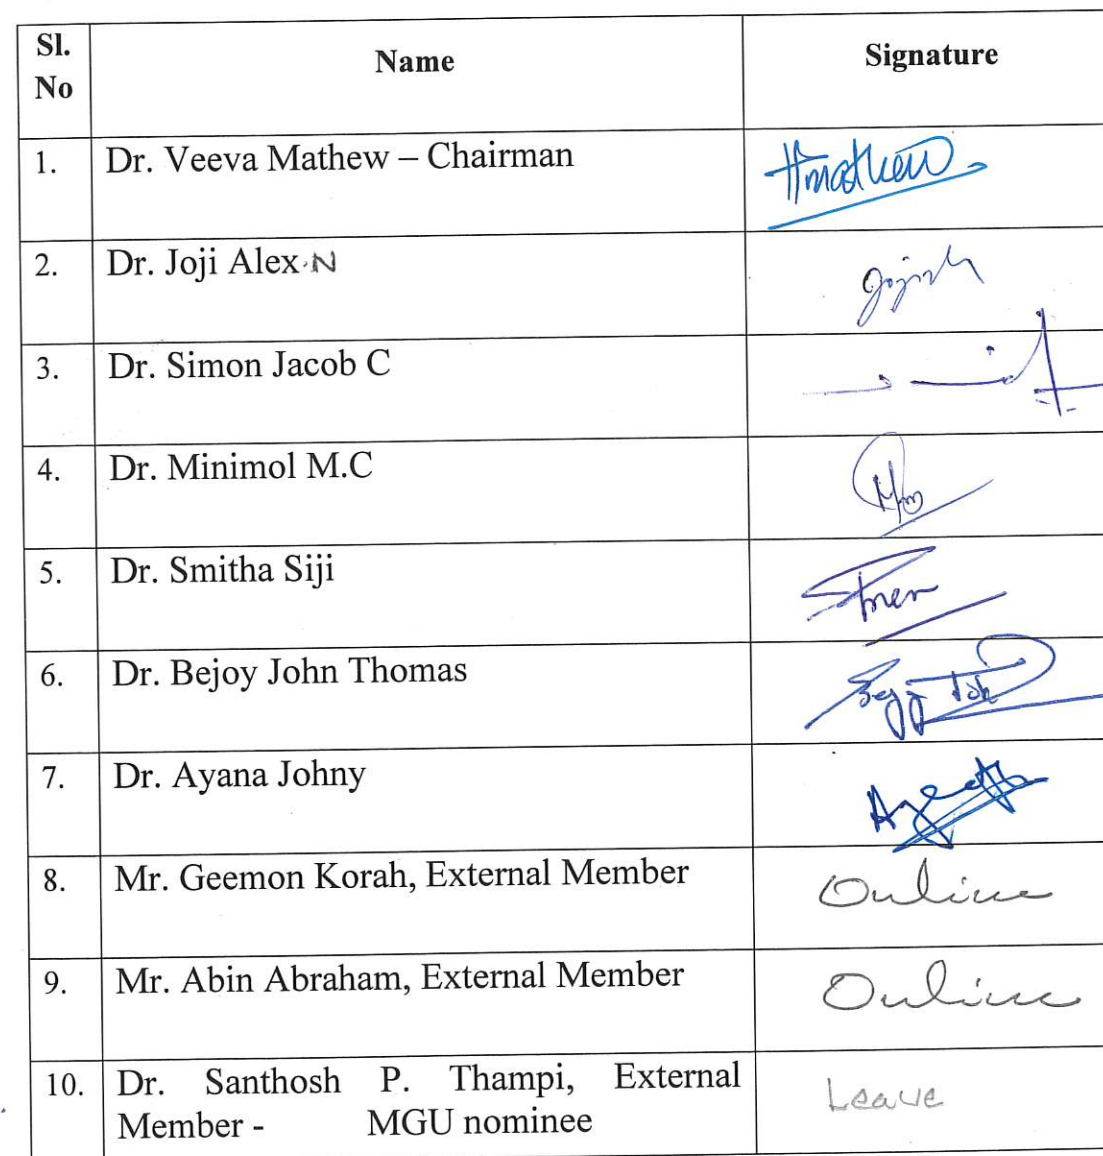 Sl. No
Name
Signature
1.
Dr. Veeva Mathew – Chairman
2.
Dr. Joji Alex.N
3.
Dr. Simon Jacob C
4.
Dr. Minimol M.C
5.
Dr. Smitha Siji
6.
Dr. Bejoy John Thomas
7.
Dr. Ayana Johny
8.
Mr. Geemon Korah, External Member
Online
9.
Mr. Abin Abraham, External Member
Online
10.
Dr. Santhosh P. Thampi, External
Member - MGU nominee
Leave